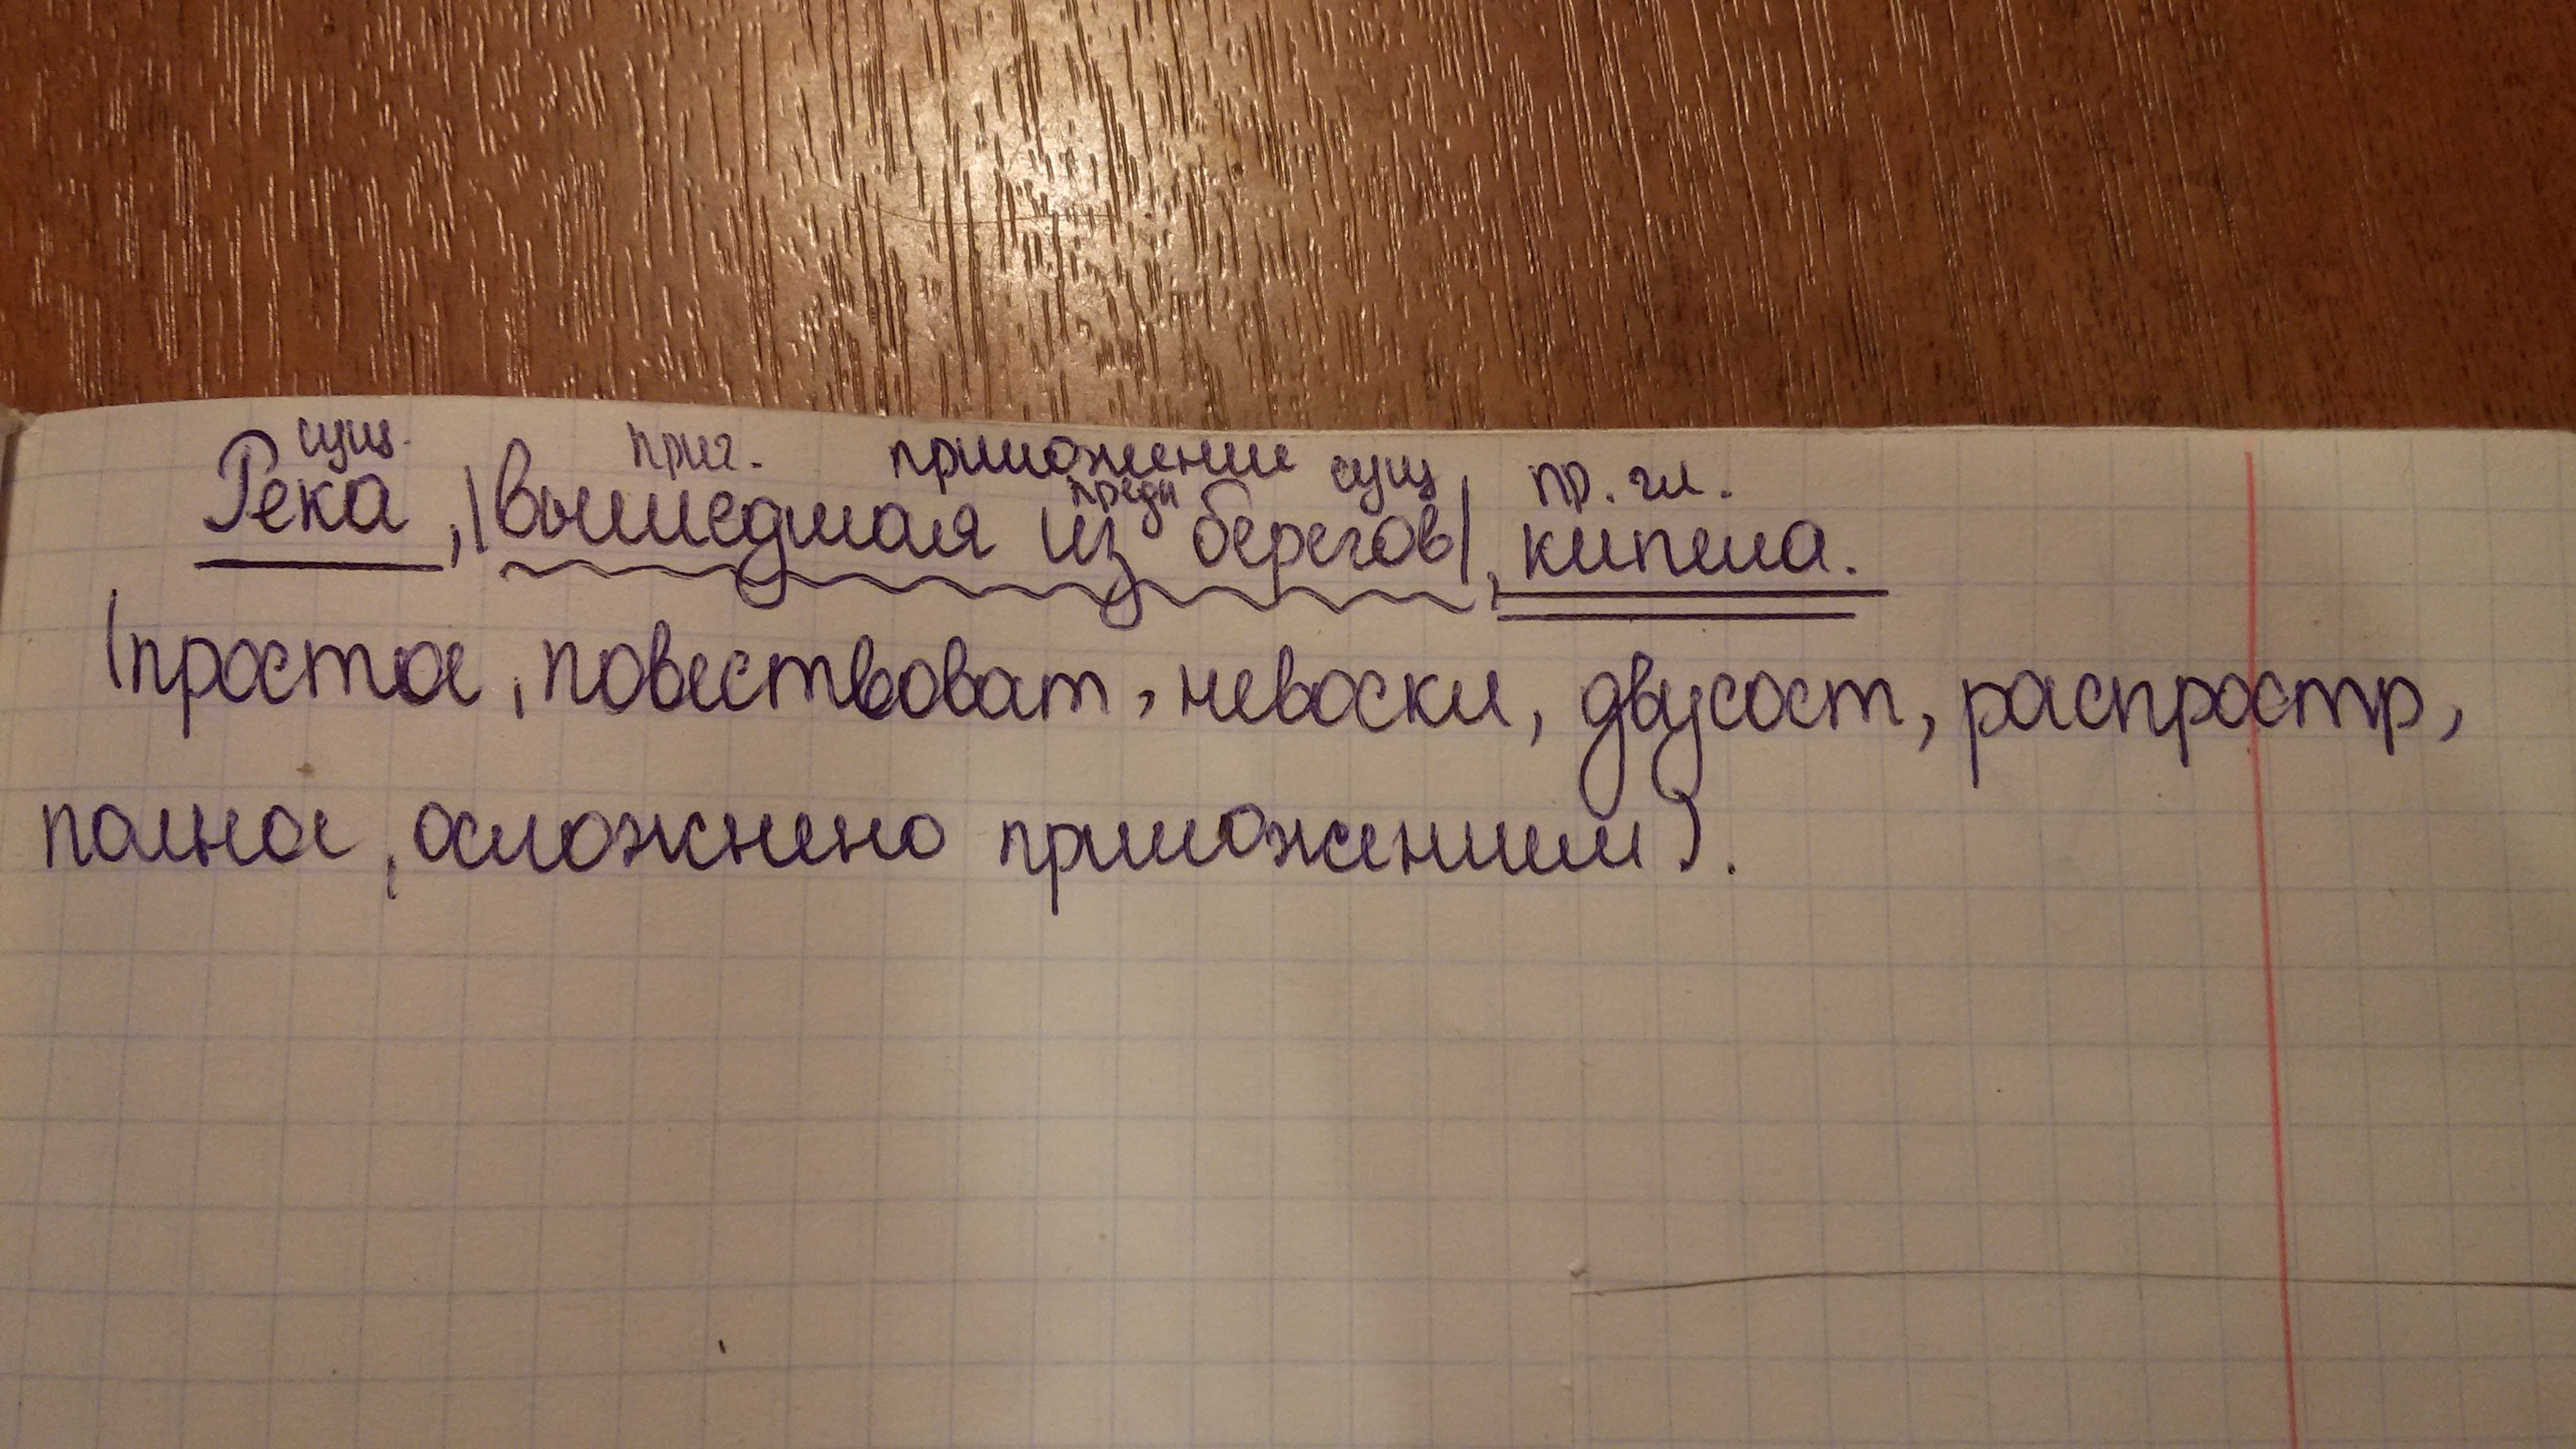 сущ. прич. приложение сущ пр. гл.
предл
Река, |вышедшая из берегов|, кипела.
(простое, повествоват, невоскл, двусост, распростр,
полное, осложнено приложением).